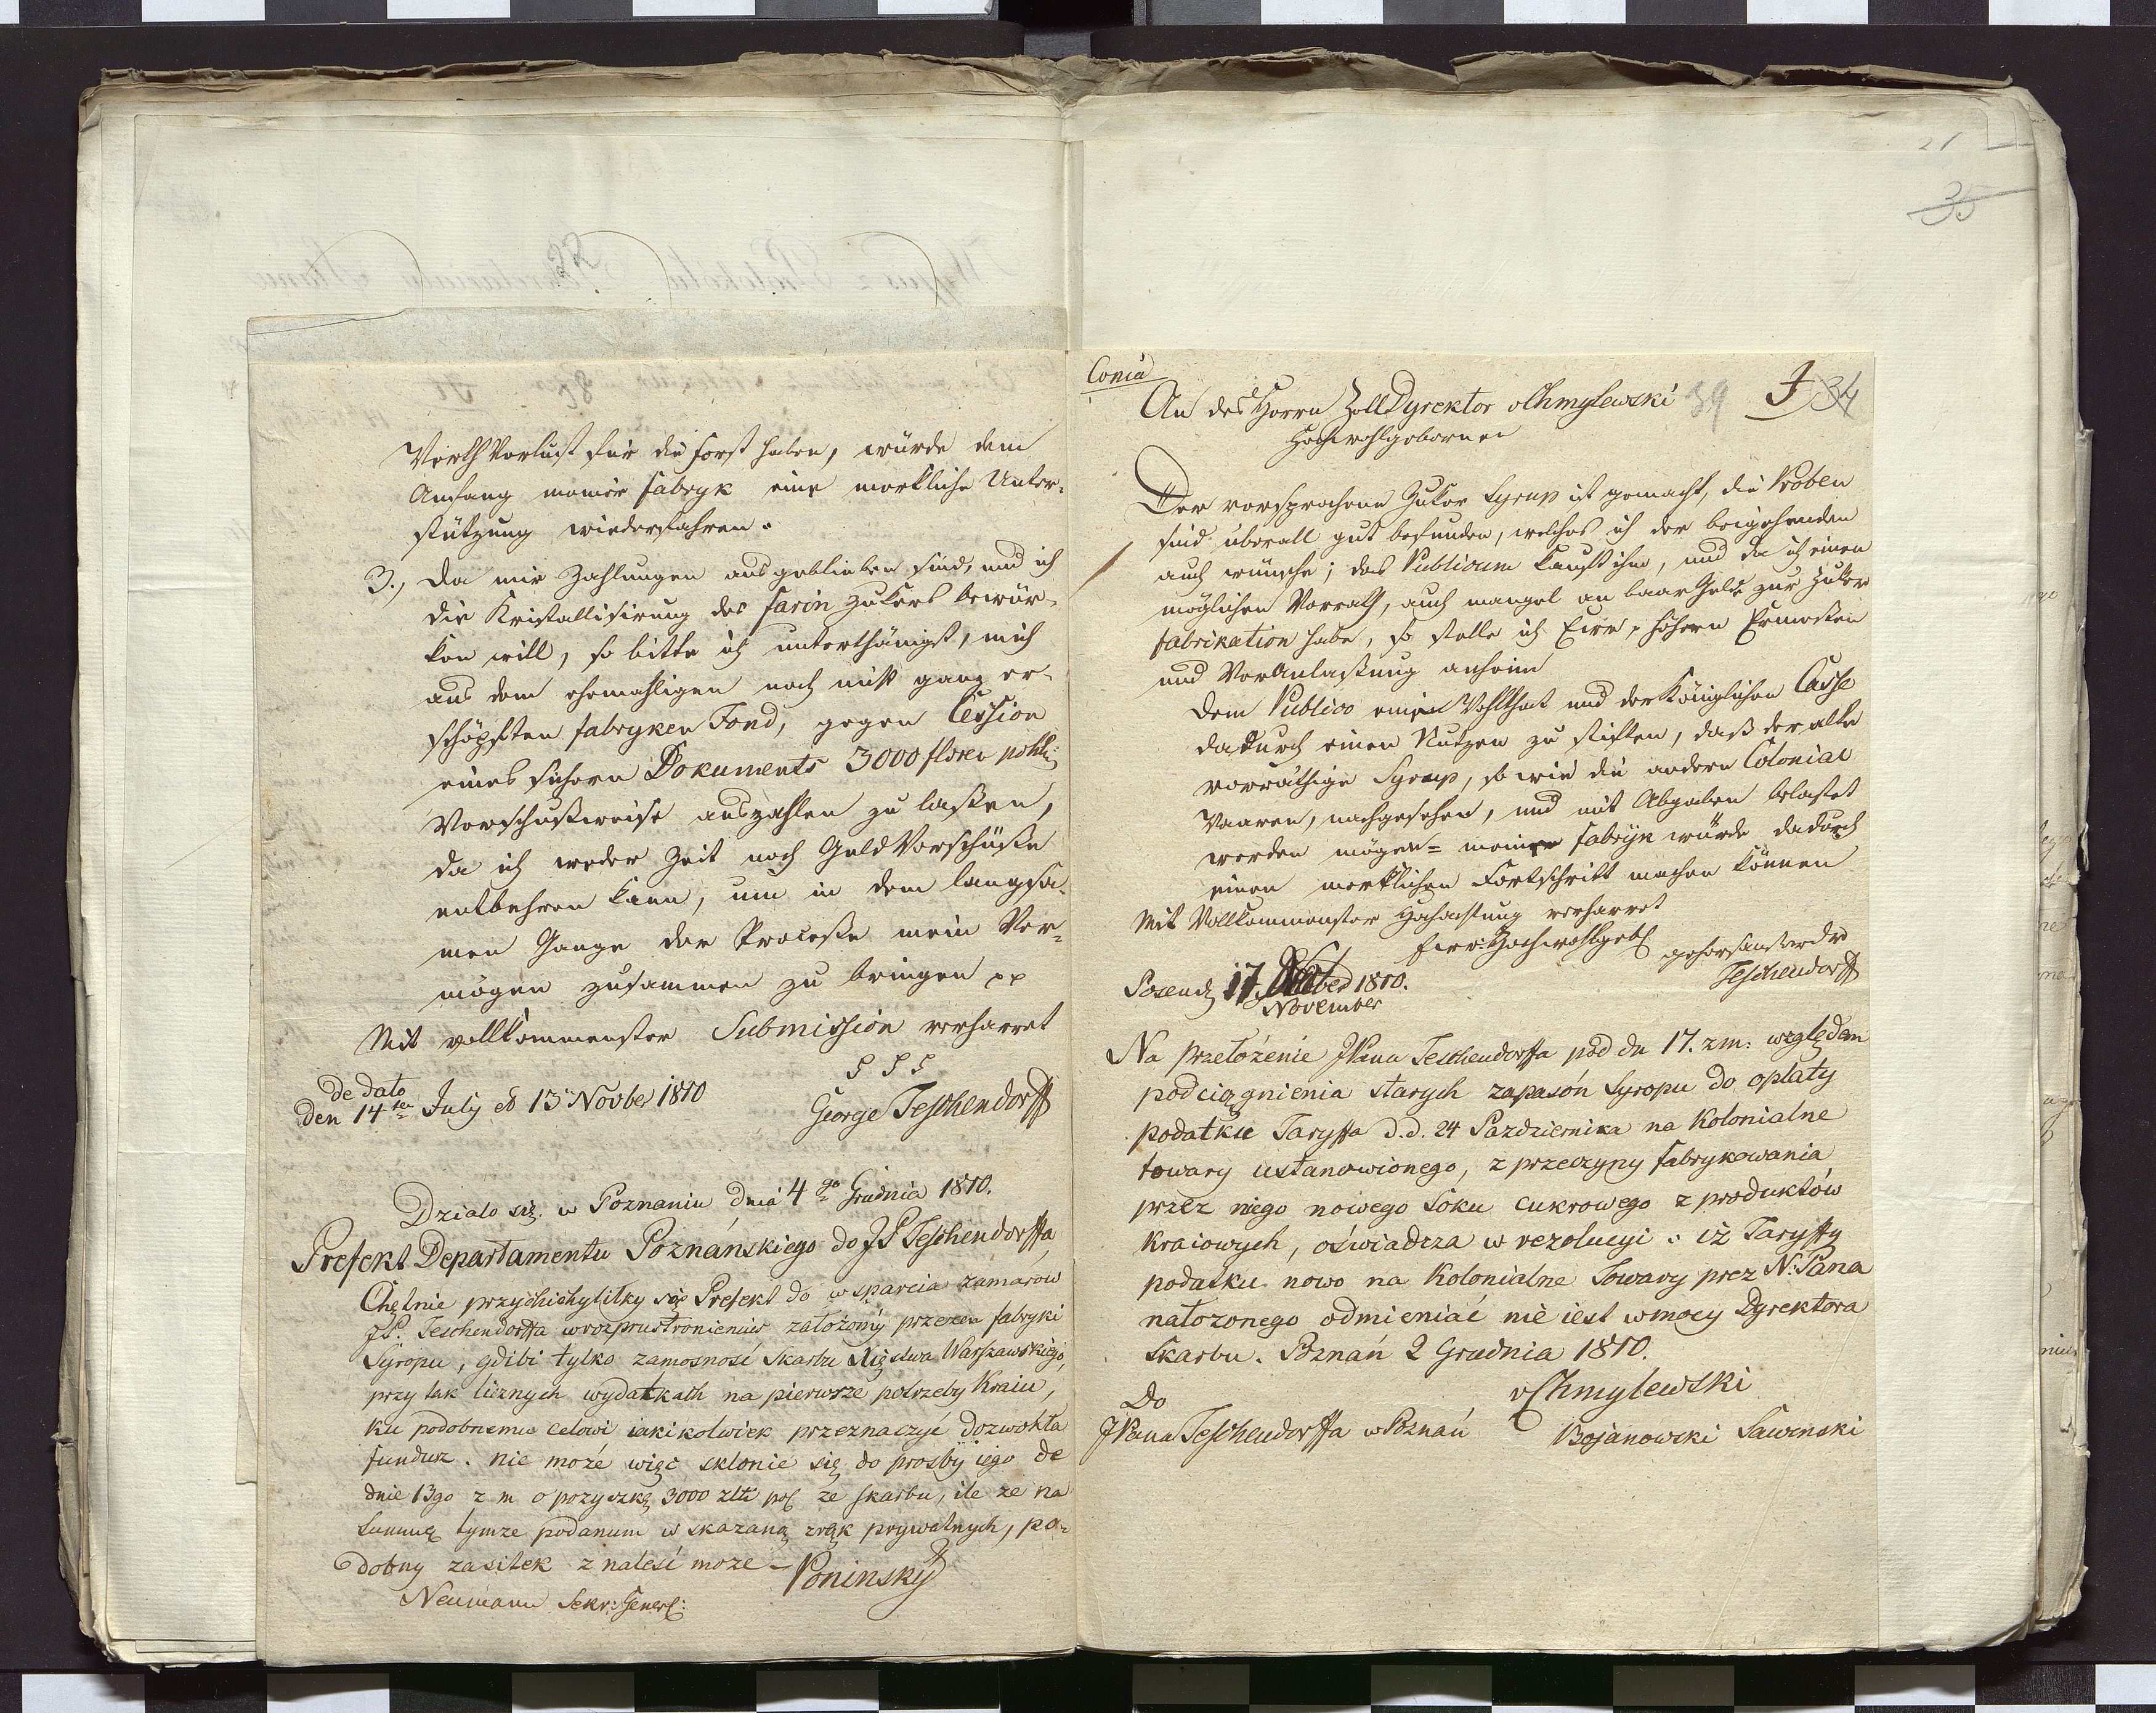 Werth Verlust für die Forst haben, würde dem
Anfang meiner Fabryk eine merkliche Unter-
stützung wiederfahren.
3., Da mir Zahlungen ausgeblieben sind, und ich
die Kristallisirung des Farin Zukers bewür-
ken will, so bitte ich unterthänigst, mich
aus dem ehemahligen noch nicht ganz er-
schöpften fabryken Fond, gegen Cession
eines sichern Dokuments 3000 floren pohl:
Vorschußweise auszahlen zu laßen,
da ich weder Zeit noch Geld Vorschüße
entbehren kann, um in dem langsa-
men Gange der Proceße mein Ver-
mögen zusammen zu bringen pp
Mit vollkommenster Submission verharret
de dato
den 14ten July et 13 Novber 1810
George Teschendorff
Działo się w Poznaniu dnia 4go Grudnia 1810.
Prefekt Departamentu Poznańskiego do JP Teschendorffa
Chętnie przychichyliłky się Prefekt do wsparcia zamarow
JP. Teschendorffa w rozprustronieniu założony przezen fabryki
Syropu, gdibi tylko zamosnosć Skarbu Xięstwa Warszawskiego,
przy tak licznych wydatkach na pierwsze potrzeby Kraiu,
ku podobnemu celowi iakikolwiek przeznaczyć dozwoliła
fundusz. nie może więc sklonie się do prosby iego de
dnie 13go z m o pozyszkę 3000 złt pol ze skarbu, ile ze na
Summę tymze podanum wskazaną z rąk prywatnych, po-
dobny zasiłek z nalesć moze – Poninsky
Neumann Sekr: General:
21
35
Copia
An des Herrn Zoll Dyrektor v Chmylewski 39 J 34
Hochwohlgebornen
Der versprochene Zuker Syrup ist gemacht, die Proben
sind überall gut befunden, welches ich der beigehenden
auch wünsche; das Publicum kauft ihn, und da ich einen
möglichen Vorrath, auch mangel an baar Gelde zur Zuker
fabrikation habe, so stelle ich Eure höhern Ermeßen
und Veranlaßung anheim
Dem Publico einen Wohlthat und der Königlichen Casse
dadurch einen Nutzen zu stiften, daß der alte
vorräthige Syrup, so wie die andern Colonial
Waaren, nachgesehen, und mit Abgaben belastet
werden mögen = meiner Fabryk würde dadurch
einen merklichen Fortschritt machen können
Mit Vollkommenster Hochachtung verharret
Eurer Hochwohlgeb
gehorsamster Dr
Teschendorff
Posen d 17 October 1810.
November
Na przełożenie JPana Teschendorffa pod dn 17. z m: względem
podciągnienia starych zapasón Syropu do opłaty
podatku Taryffa d. d. 24 Pazdziernika na Kolonialne
towary ustanowionego, z przeczyny fabrykowania
przez niego nowego Soku cukrowego z produktów
kraiowych, oświadcza w rezolucyi: iż Taryffy
podatku nowo na Kolonialne Towary prez N: Pana
nałozonego odmieniać nie iest w mocy Dyrektora
Skarbu. Poznań 2 Grudnia 1810.
v Chmylewski
Do
JPana Teschendorffa w Poznań Bojanowski Sawinski